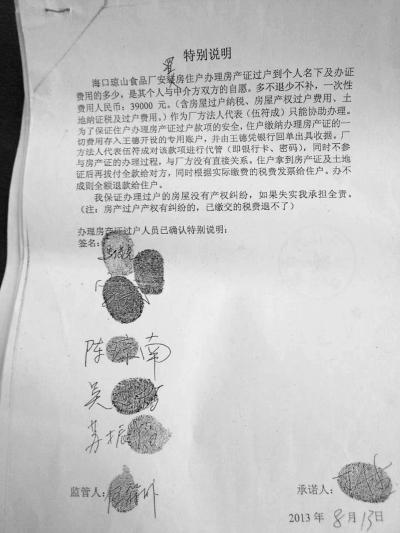 特别说明
海口琼山食品厂安置房住户办理房产证过户到个人名下及办证
费用的多少，是其个人与中介方双方的自愿。多不退少不补，一次性
费用人民币：39000 元。（含房屋过户纳税、房屋产权过户费用、土
地纳证税及过户费用。）作为厂方法人代表（伍符成）只能协助办理。
为了保证住户办理房产证过户款项的安全，住户缴纳办理房产证的一
切费用存入王德开设的专用账户，并由王德凭银行回单出具收据。厂
方法人代表伍符成对该款项进行代管（即银行卡、密码），同时不参
与房产证的办理过程，与厂方没有直接关系。住户拿到房产证及土地
证后再拔付全款给对方，同时根据实际缴费的税费发票给住户。办不
成则全额退款给住户。
我保证办理过户的房屋没有产权纠纷，如果失实我承担全责。
（注：房产过户产权有纠纷的，已缴交的税费退不了）
办理房产证过户人员已确认特别说明：
签名：
陈 南
吴
苏振
监管人：
承诺人：
2013 年 8月13日